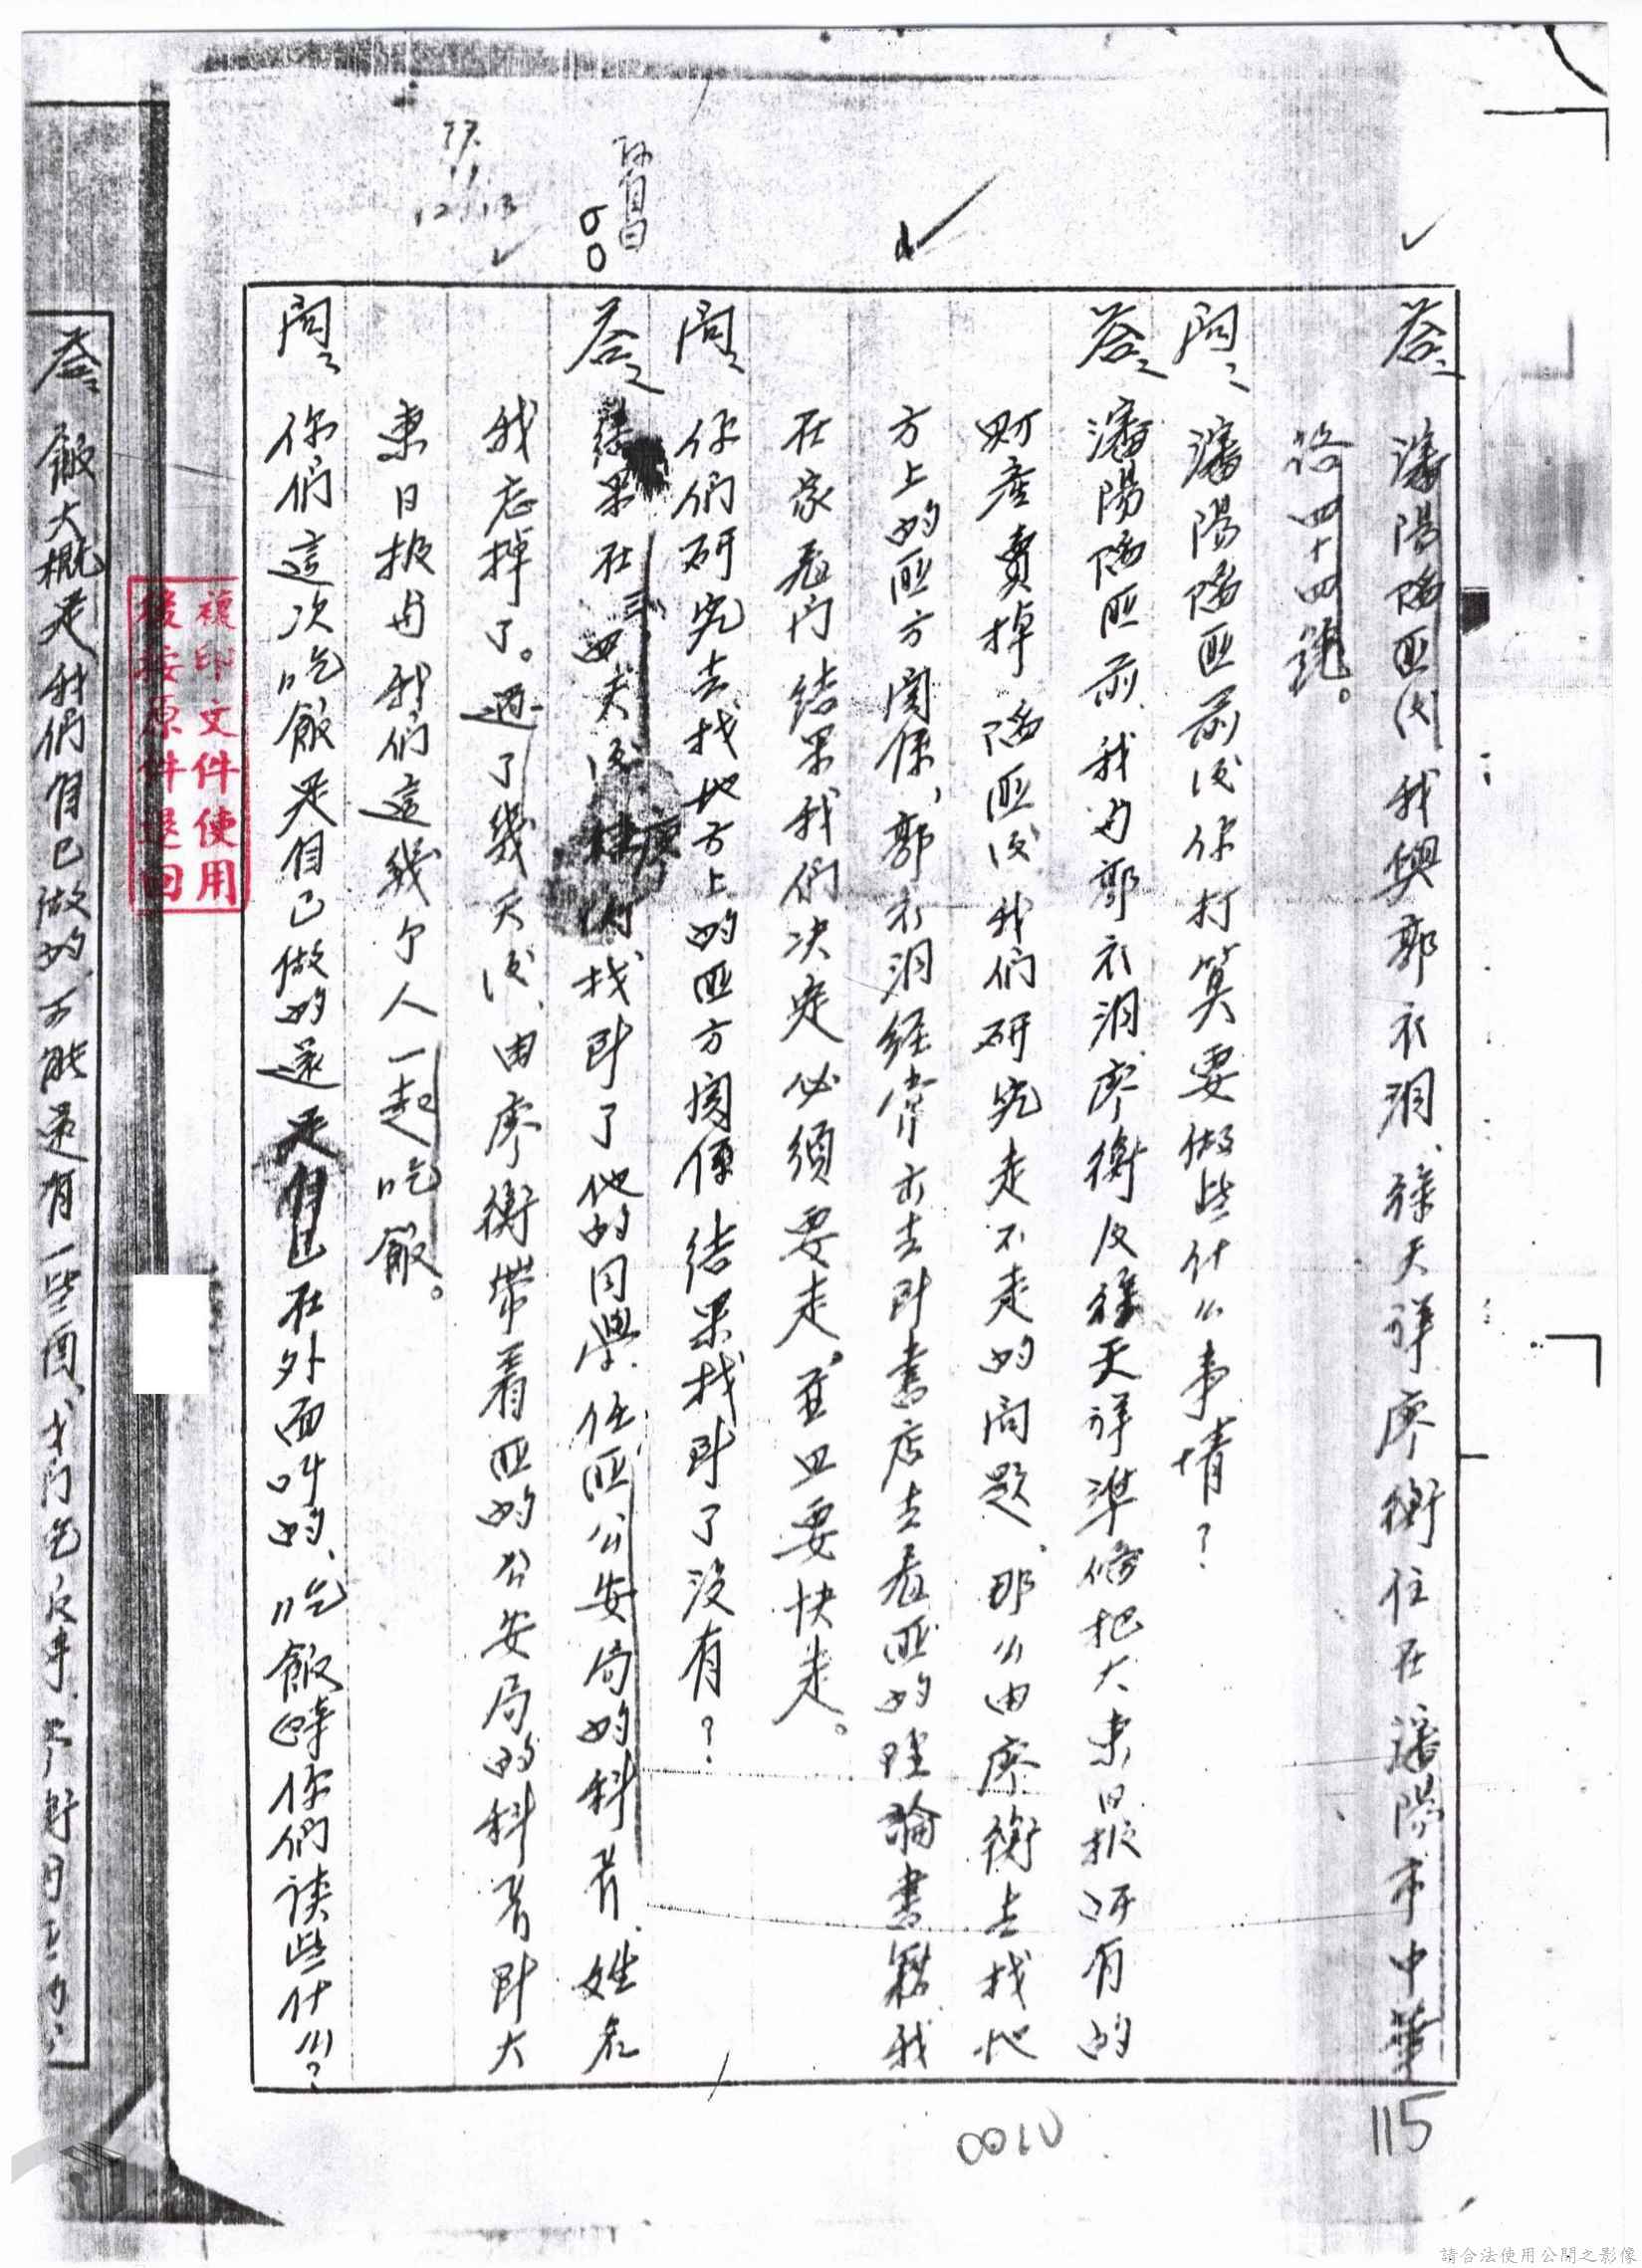 答、瀋陽陷匪后我與郭衣洞、孫天祥廖衡住在瀋陽市中華
路四十四號。
問、瀋陽陷匪前后你打算要做些什么事情?
答、瀋陽陷匪前、我与郭衣洞廖衡及孫天祥準俻把大東日报所有的
財產賣掉陷匪后我们研究走不走的问題、那么由廖衡去找地
方上的匪方関係,郭衣洞經常出去到書店去看匪的理論書籍我
在家看门結果我们决定必須要走。並且要快走。
問、你們研究去找地方上的匪方関係結果找到了没有?
答、結果在三四天后廖衡找到了他的同學、任匪公安局的科長、姓名
我忘掉了。過了幾天后、由廖衡带着匪的公安局的科長到大
東日报与我们這幾个人一起吃飯。
問、你們這次吃飯是自己做的還是在外面叫的、吃飯時你們談些什么?
答、飯大概是我們自己做的、可能還有一些酒、我们吃
複印文件使用
後按原件退回
77.
11
12
115
0010
請合法使用公開之影像